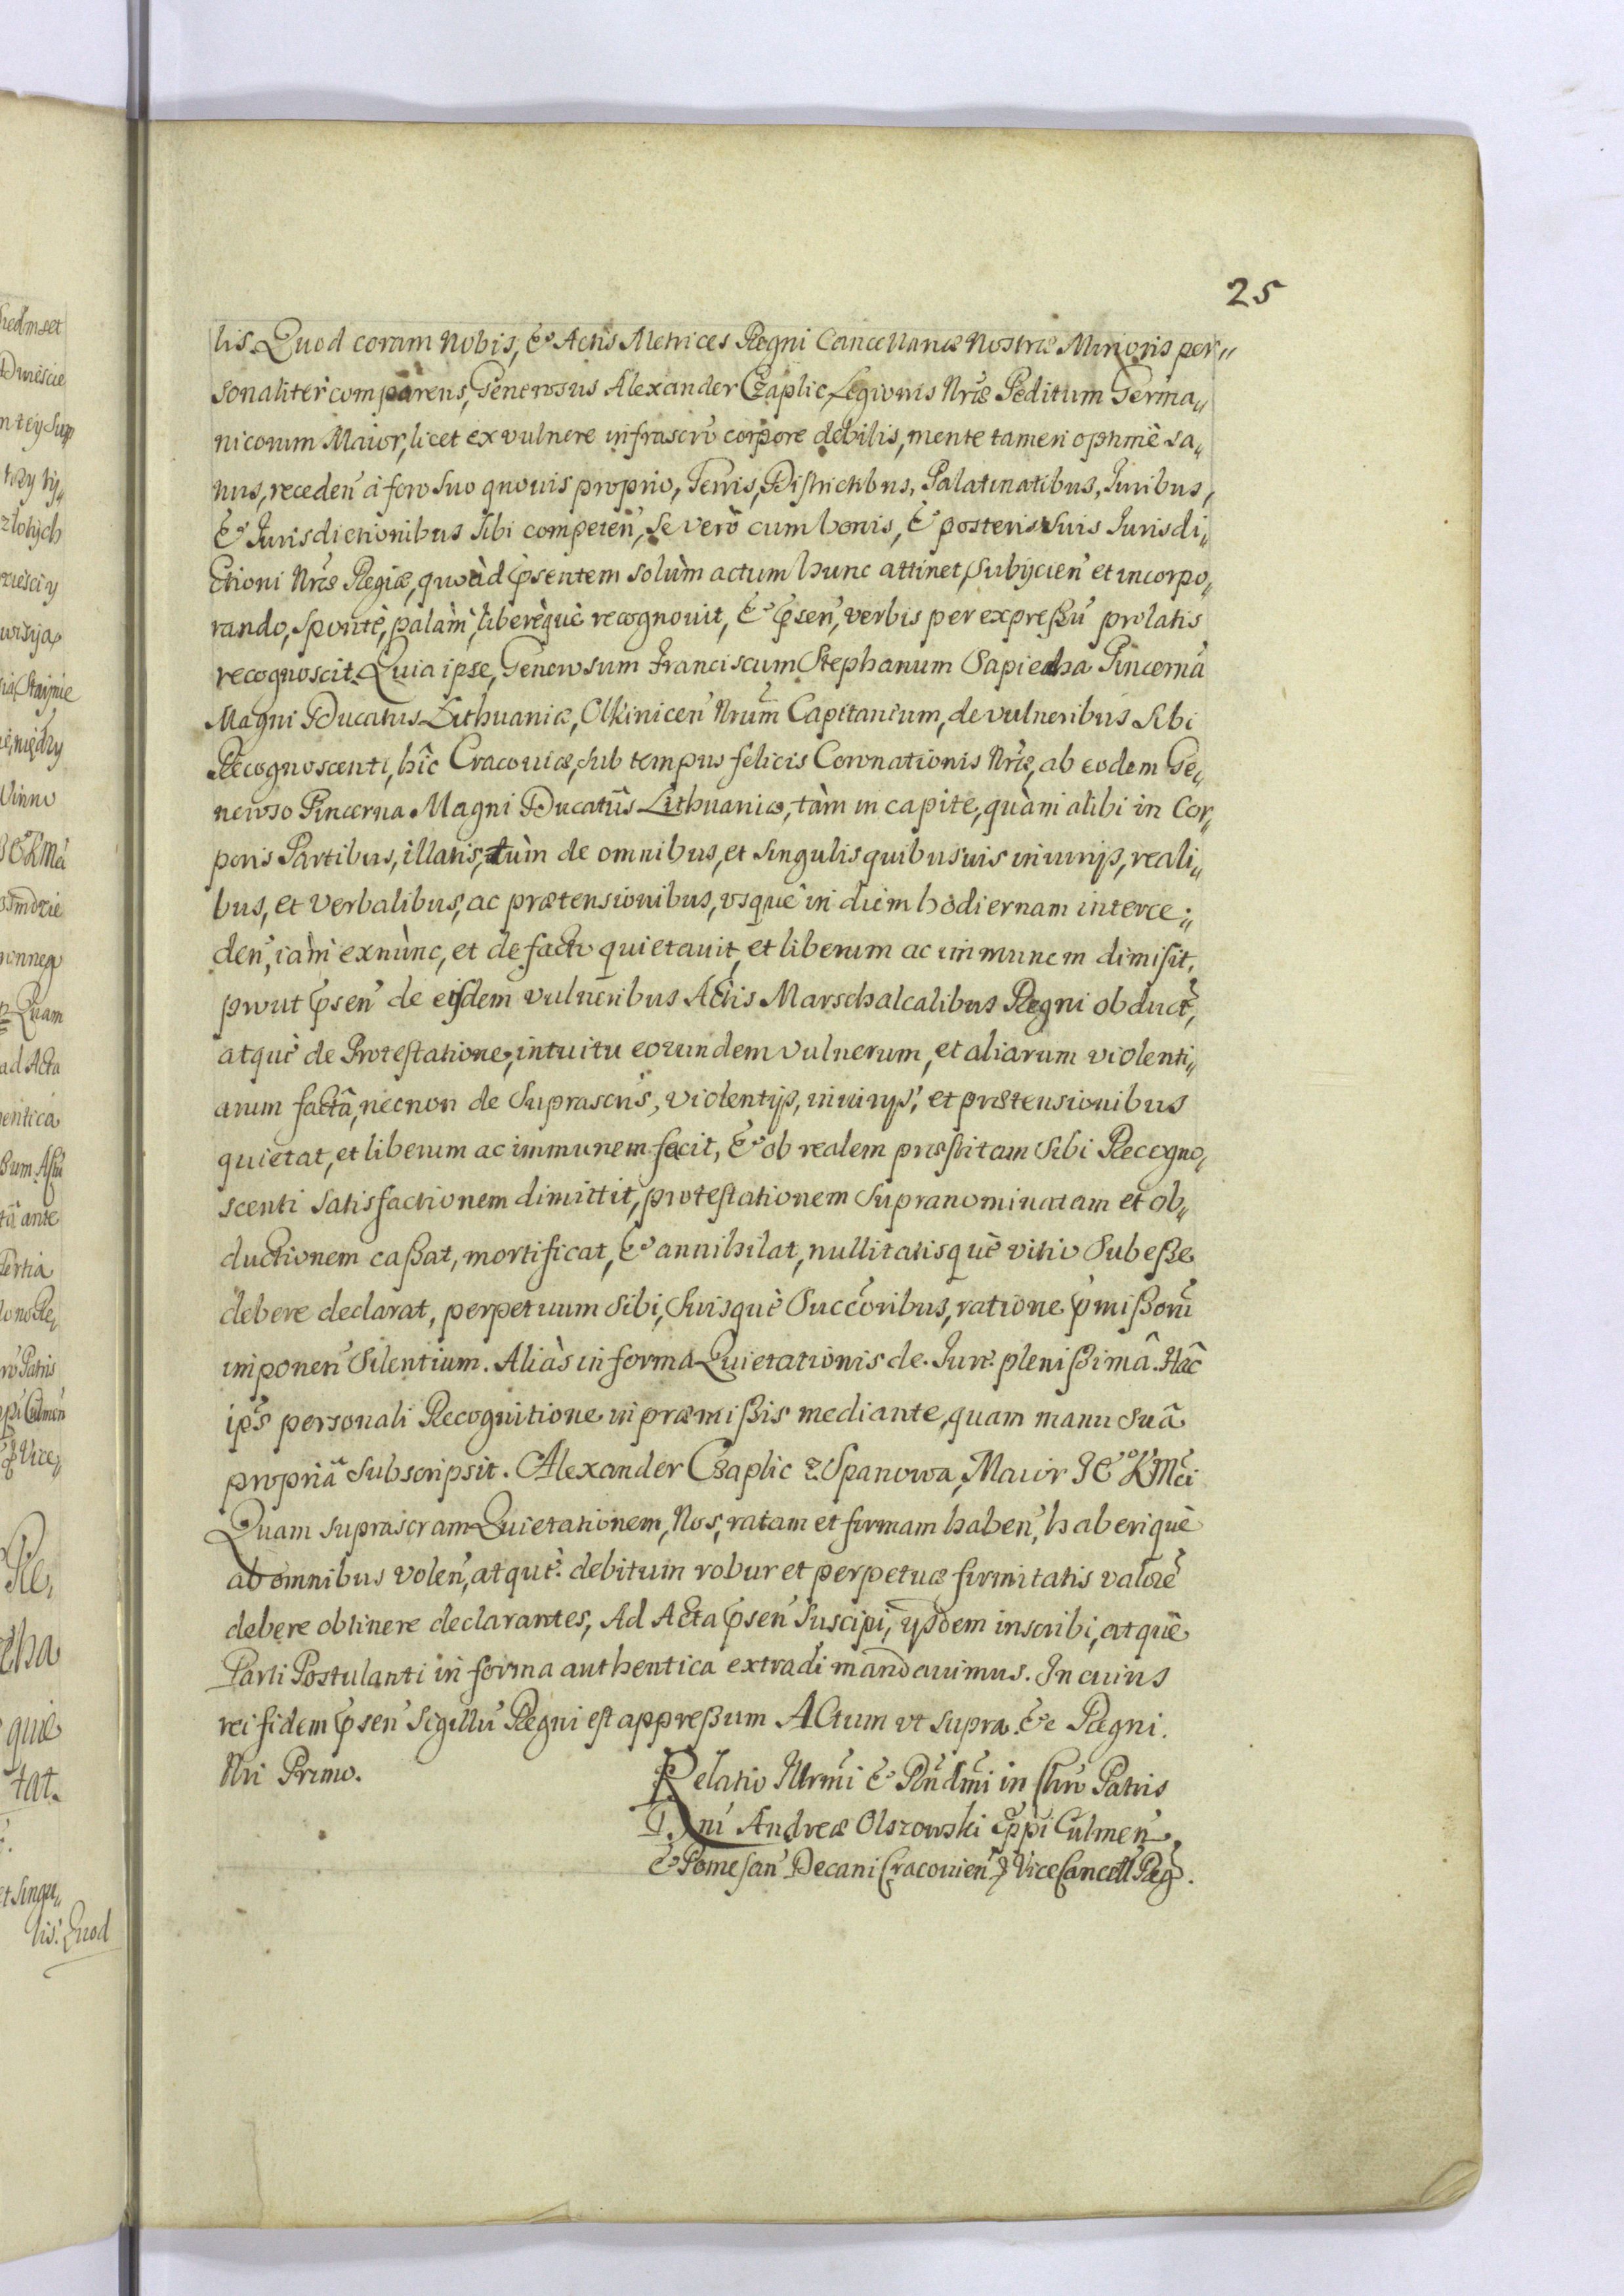 25
lis. Quod coram Nobis, & Actis Metrices Regni Cancellariæ Nostræ Minoris per„
sonaliter comparens, Generosus Alexander Czaplic, Legionis Nræ Peditum Germa„
nicorum Maior, licet ex vulnere infrascrō corpore debilis, mente tamen optimè sa„
nus, receden̄ à foro suo quouis proprio, Terris, Districtibus, Palatinatibus, Iuribus,
& Iurisdictionibus sibi competen̄, Se verò cum bonis, & posteris suis Iurisdi„
ctioni Nræ Regiæ, quoàd p̄sentem solùm actum hunc attinet, Subijcien̄ et incorpo„
rando, spontè, palàm, liberèquè recognouit, & p̄sen̄, verbis per expreßū prolatis
recognoscit. Quia ipse, Generosum Franciscum Stephanum Sapieha Pincernā
Magni Ducatus Lithuaniæ, Olkinicen̄ Nrūm Capitaneum, de vulneribus Sibi
Recognoscenti, hîc Cracouiæ, sub tempus felicis Coronationis Nræ, ab eodem Ge„
neroso Pincerna Magni Ducatûs Lithuaniæ, tàm in capite, quàm alibi in Cor„
poris Partibus, illatis, tùm de omnibus, et Singulis quibusuis iniurijs, reali„
bus, et verbalibus, ac prætensionibus, vsquè in diem hodiernam interce„
den̄, iàm exnùnc, et de facto quietauit, et liberum ac immunem dimisit,
prout p̄sen̄ de eisdem vulneribus Actis Marschalcalibus Regni obduct̄,
atquè de Protestatione, intuitu eorundem vulnerum, et aliarum violenti„
arum factâ, necnon de Suprascr̄is, violentijs, iniurijs, et prætensionibus
quietat, et liberum ac immunem facit, & ob realem præstitam Sibi Recogno„
scenti Satisfactionem dimittit, protestationem Supranominatam et ob„
ductionem caßat, mortificat, & annihilat, nullitatisquè vitio Subeße
debere declarat, perpetuum Sibi, Suisquè Succ̄oribus, ratione p̄mißorū
imponen̄ Silentium. Aliàs in forma Quietationis de Iure plenißimâ. Hâc
ip̄s personali Recognitione in præmißis mediante, quam manu Suâ
propriâ Subscripsit. Alexander Czaplic z Spanowa, Maior JE°KMći
Quam suprascr̄am Quietationem, Nos, ratam et firmam haben̄, haberiquè
ab omnibus volen̄, atquè debitum robur et perpetuæ firmitatis valorē
debere obtinere declarantes, Ad Acta p̄sen̄ Suscipi, ijsdem inscribi, atquè
Parti Postulanti in forma authentica extradi mandauimus. In cuius
rei fidem p̄sen̄ Sigillū Regni est appreßum Actum vt supra &c Regni.
Nri Primo.
Relatio Illrm̄i & Rn̄dmi in Chro Patris
Dn̄i Andreæ Olszowski Ep̄pi Culmen̄,
& Pomesan̄ Decani Cracouien̄ & ViceCancell Regi.